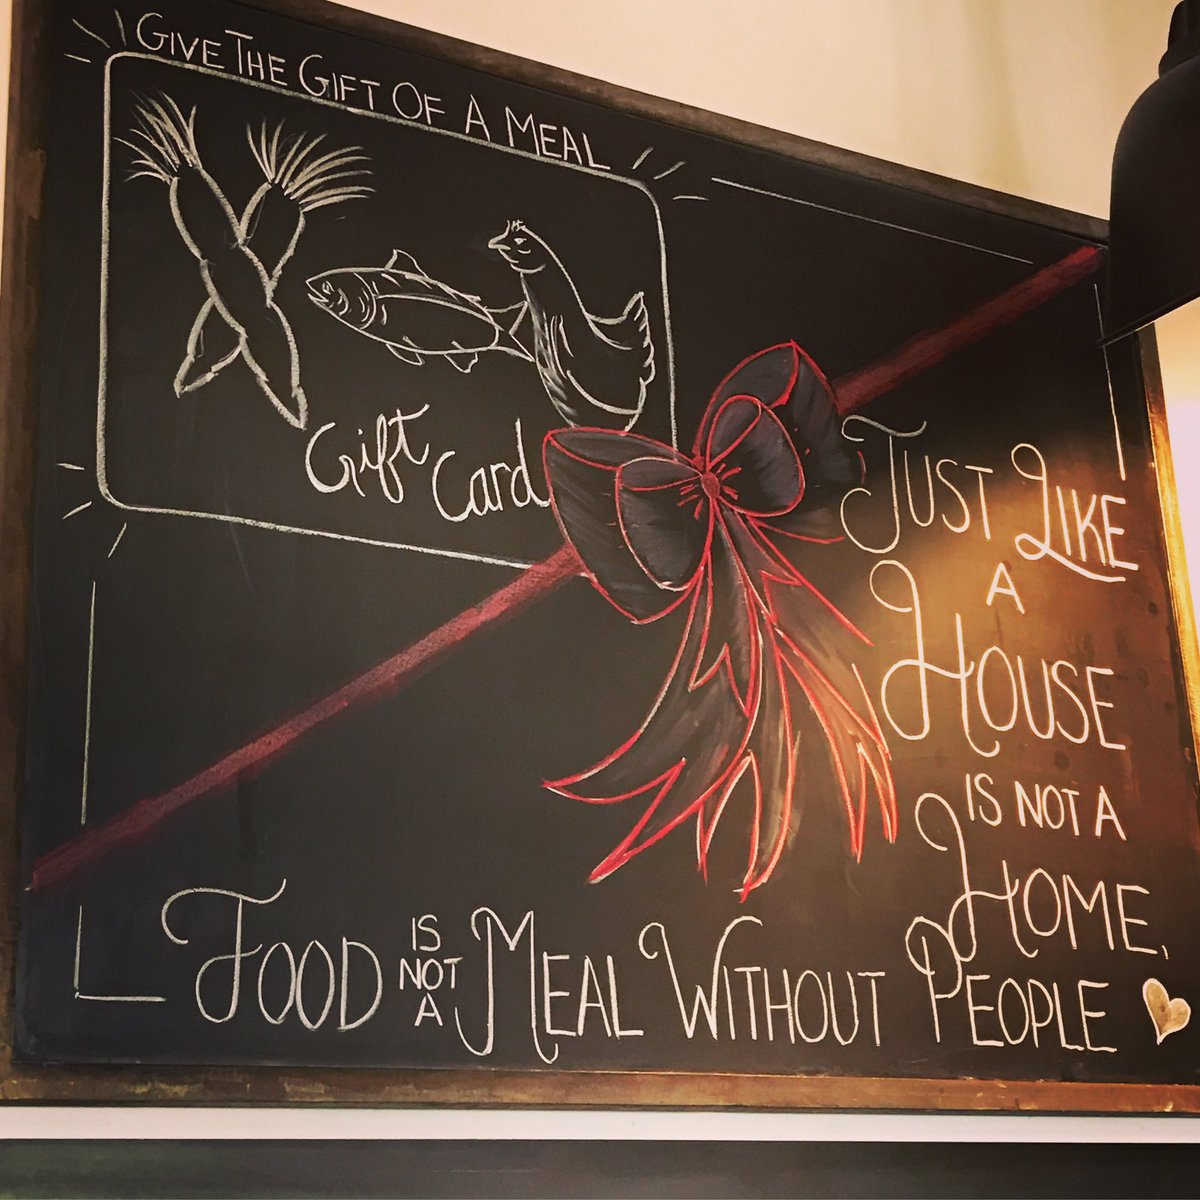 GIVE THE GIFT OF A MEAL
Gift
Card
JUST LIKE
A
HOUSE
IS NOT A
HOME,
FOOD IS NOT A MEAL WITHOUT PEOPLE